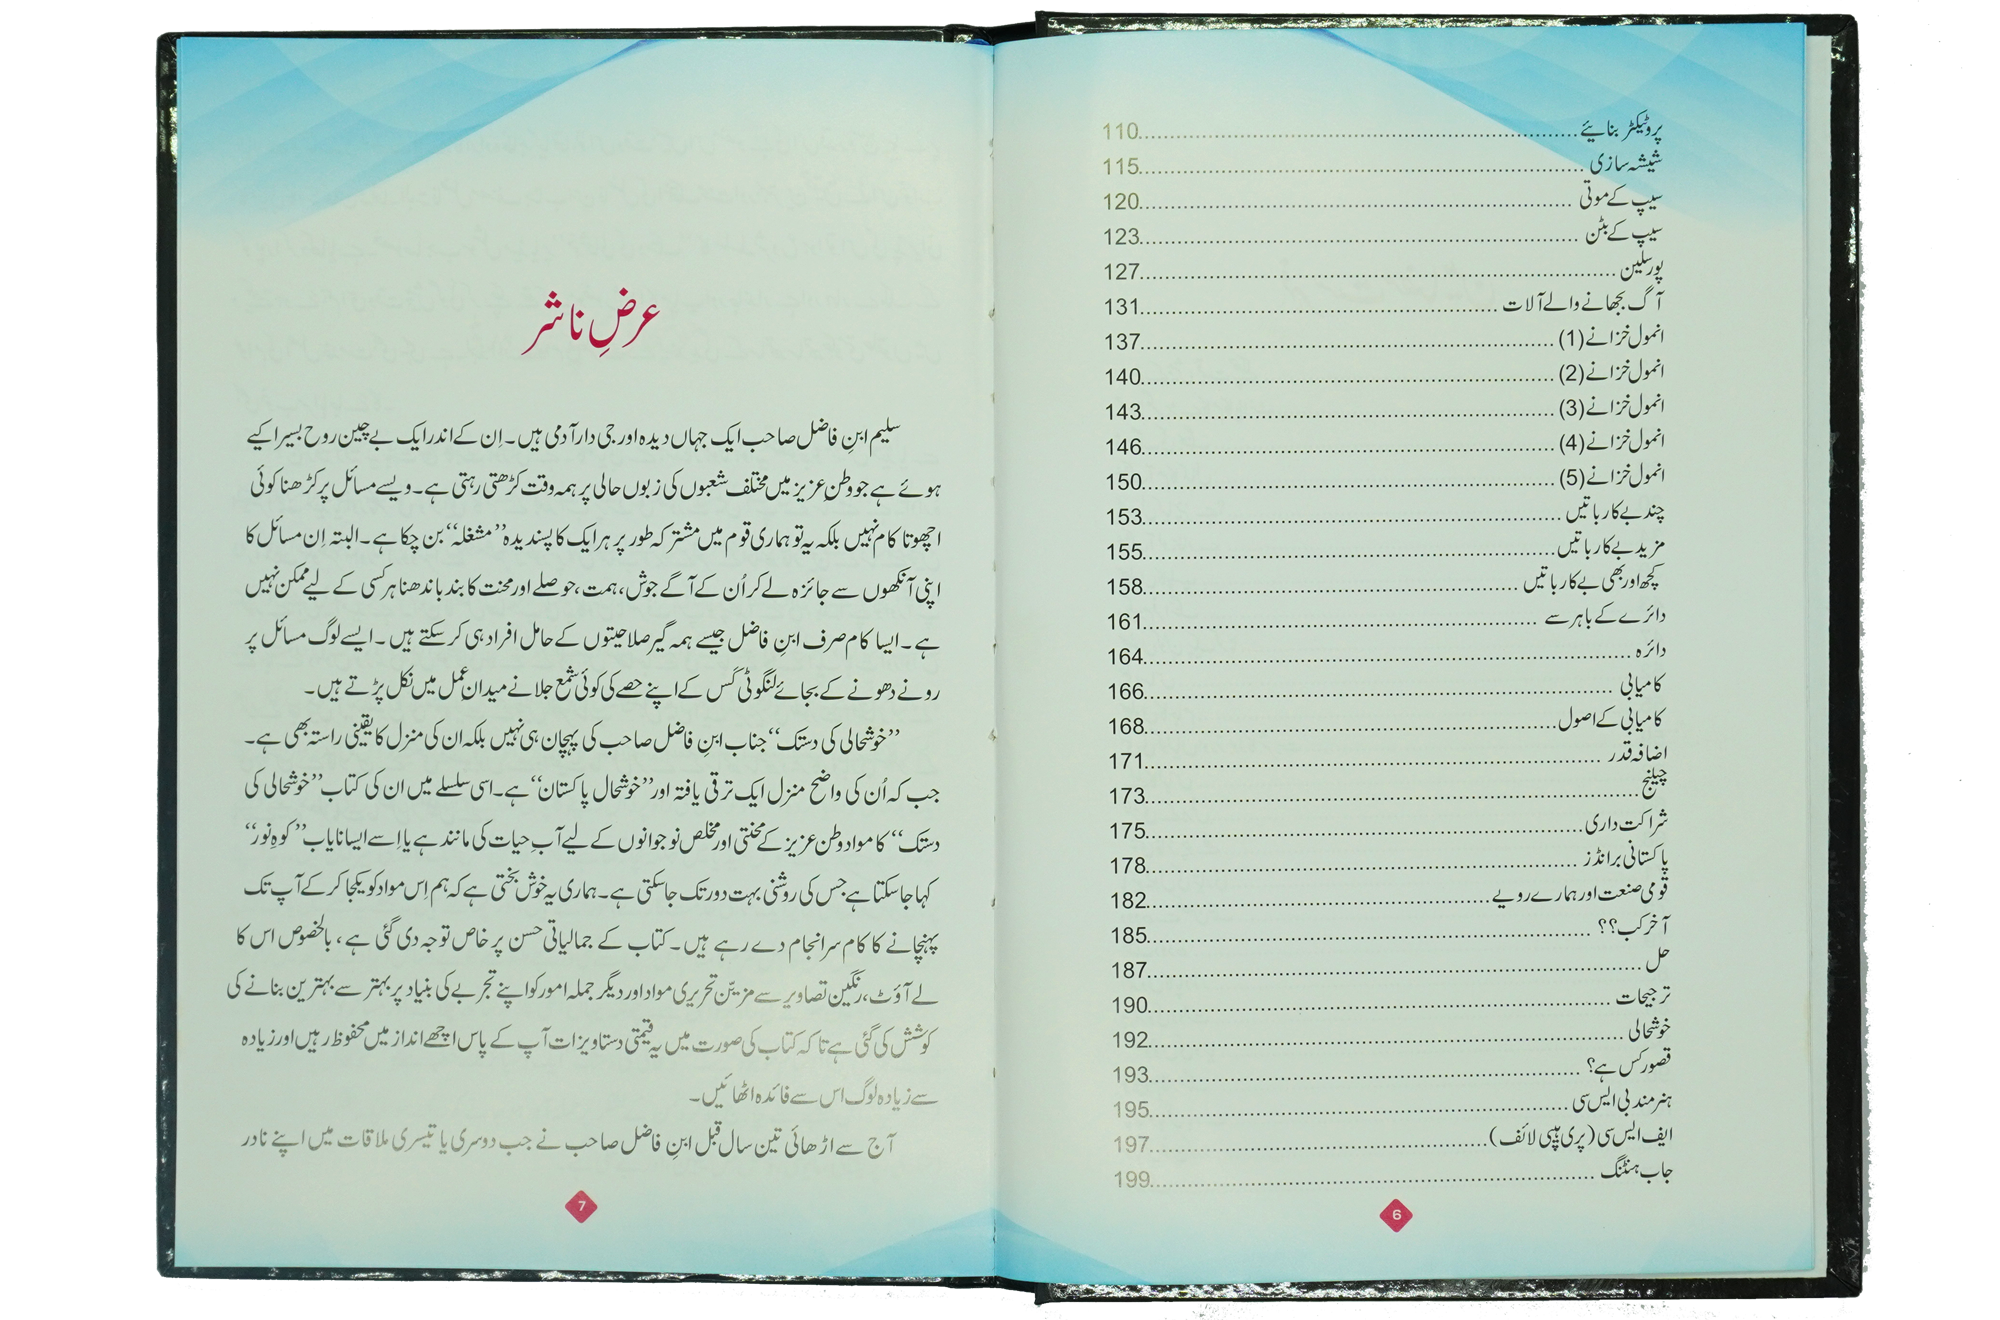 پروٹیکٹر بنائیے 110
شیشہ سازی 115
سیپ کے موتی 120
سیپ کے بٹن 123
پورسلین 127
آگ بجھانے والے آلات 131
انمول خزانے (1) 137
انمول خزانے (2) 140
انمول خزانے (3) 143
انمول خزانے (4) 146
انمول خزانے (5) 150
چند بے کار باتیں 153
مزید بے کار باتیں 155
کچھ اور بھی بے کار باتیں 158
دائرے کے باہر سے 161
دائرہ 164
کامیابی 166
کامیابی کے اصول 168
اضافہ قدر 171
چیلنج 173
شراکت داری 175
پاکستانی برانڈز 178
قومی صنعت اور ہمارے رویے 182
آخر کب؟؟ 185
حل 187
ترجیحات 190
خوشحالی 192
قصور کس ہے؟ 193
ہنر مند بی ایس سی 195
ایف ایس سی (پری ہیپی لائف) 197
جاب ہنٹنگ 199
6
عرضِ ناشر
سلیم ابنِ فاضل صاحب ایک جہاں دیدہ اور جی دار آدمی ہیں۔ اِن کے اندر ایک بے چین روح بسیرا کیے
ہوئے ہے جو وطنِ عزیز میں مختلف شعبوں کی زبوں حالی پر ہمہ وقت کڑھتی رہتی ہے۔ ویسے مسائل پر کڑھنا کوئی
اچھوتا کام نہیں بلکہ یہ تو ہماری قوم میں مشترکہ طور پر ہر ایک کا پسندیدہ ”مشغلہ“ بن چکا ہے۔ البتہ اِن مسائل کا
اپنی آنکھوں سے جائزہ لے کر اُن کے آگے جوش، ہمت، حوصلے اور محنت کا بند باندھنا ہر کسی کے لیے ممکن نہیں
ہے۔ ایسا کام صرف ابنِ فاضل جیسے ہمہ گیر صلاحیتوں کے حامل افراد ہی کر سکتے ہیں۔ ایسے لوگ مسائل پر
رونے دھونے کے بجائے لنگوٹی کَس کے اپنے حصے کی کوئی شمع جلانے میدانِ عمل میں نکل پڑتے ہیں۔
”خوشحالی کی دستک“ جناب ابنِ فاضل صاحب کی پہچان ہی نہیں بلکہ ان کی منزل کا یقینی راستہ بھی ہے۔
جب کہ اُن کی واضح منزل ایک ترقی یافتہ اور ”خوشحال پاکستان“ ہے۔ اسی سلسلے میں ان کی کتاب ”خوشحالی کی
دستک“ کا مواد وطن عزیز کے محنتی اور مخلص نوجوانوں کے لیے آبِ حیات کی مانند ہے یا اِسے ایسا نایاب ”کوہِ نور“
کہا جا سکتا ہے جس کی روشنی بہت دور تک جا سکتی ہے۔ ہماری یہ خوش بختی ہے کہ ہم اِس مواد کو یکجا کر کے آپ تک
پہنچانے کا کام سر انجام دے رہے ہیں۔ کتاب کے جمالیاتی حسن پر خاص توجہ دی گئی ہے، بالخصوص اس کا
لے آؤٹ، رنگین تصاویر سے مزیّن تحریری مواد اور دیگر جملہ امور کو اپنے تجربے کی بنیاد پر بہتر سے بہترین بنانے کی
کوشش کی گئی ہے تاکہ کتاب کی صورت میں یہ قیمتی دستاویزات آپ کے پاس اچھے انداز میں محفوظ رہیں اور زیادہ
سے زیادہ لوگ اس سے فائدہ اٹھائیں۔
آج سے اڑھائی تین سال قبل ابنِ فاضل صاحب نے جب دوسری یا تیسری ملاقات میں اپنے نادر
7